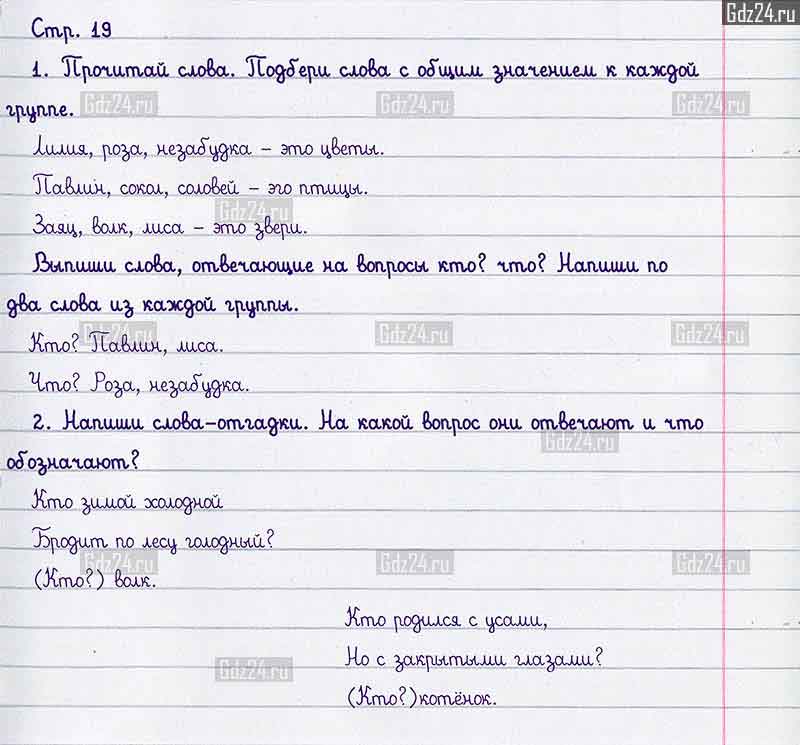 Gdz24.ru
Стр. 19
1. Прочитай слова. Подбери слова с общим значением к каждой
группе.
Gdz24.ru Gdz24.ru Gdz24.ru
Лилия, роза, незабудка – это цветы.
Павлин, сокол, соловей – это птицы.
Gdz24.ru
Заяц, волк, лиса – это звери.
Выпиши слова, отвечающие на вопросы кто? что? Напиши по
два слова из каждой группы.
Gdz24.ru Gdz24.ru Gdz24.ru
Кто? Павлин, лиса.
Что? Роза, незабудка.
2. Напиши слова-отгадки. На какой вопрос они отвечают и что
Gdz24.ru
обозначают?
Кто зимой холодной
Бродит по лесу голодный?
Gdz24.ru Gdz24.ru Gdz24.ru
(Кто?) волк.
Кто родился с усами,
Но с закрытыми глазами?
Gdz24.ru
(Кто?) котёнок.